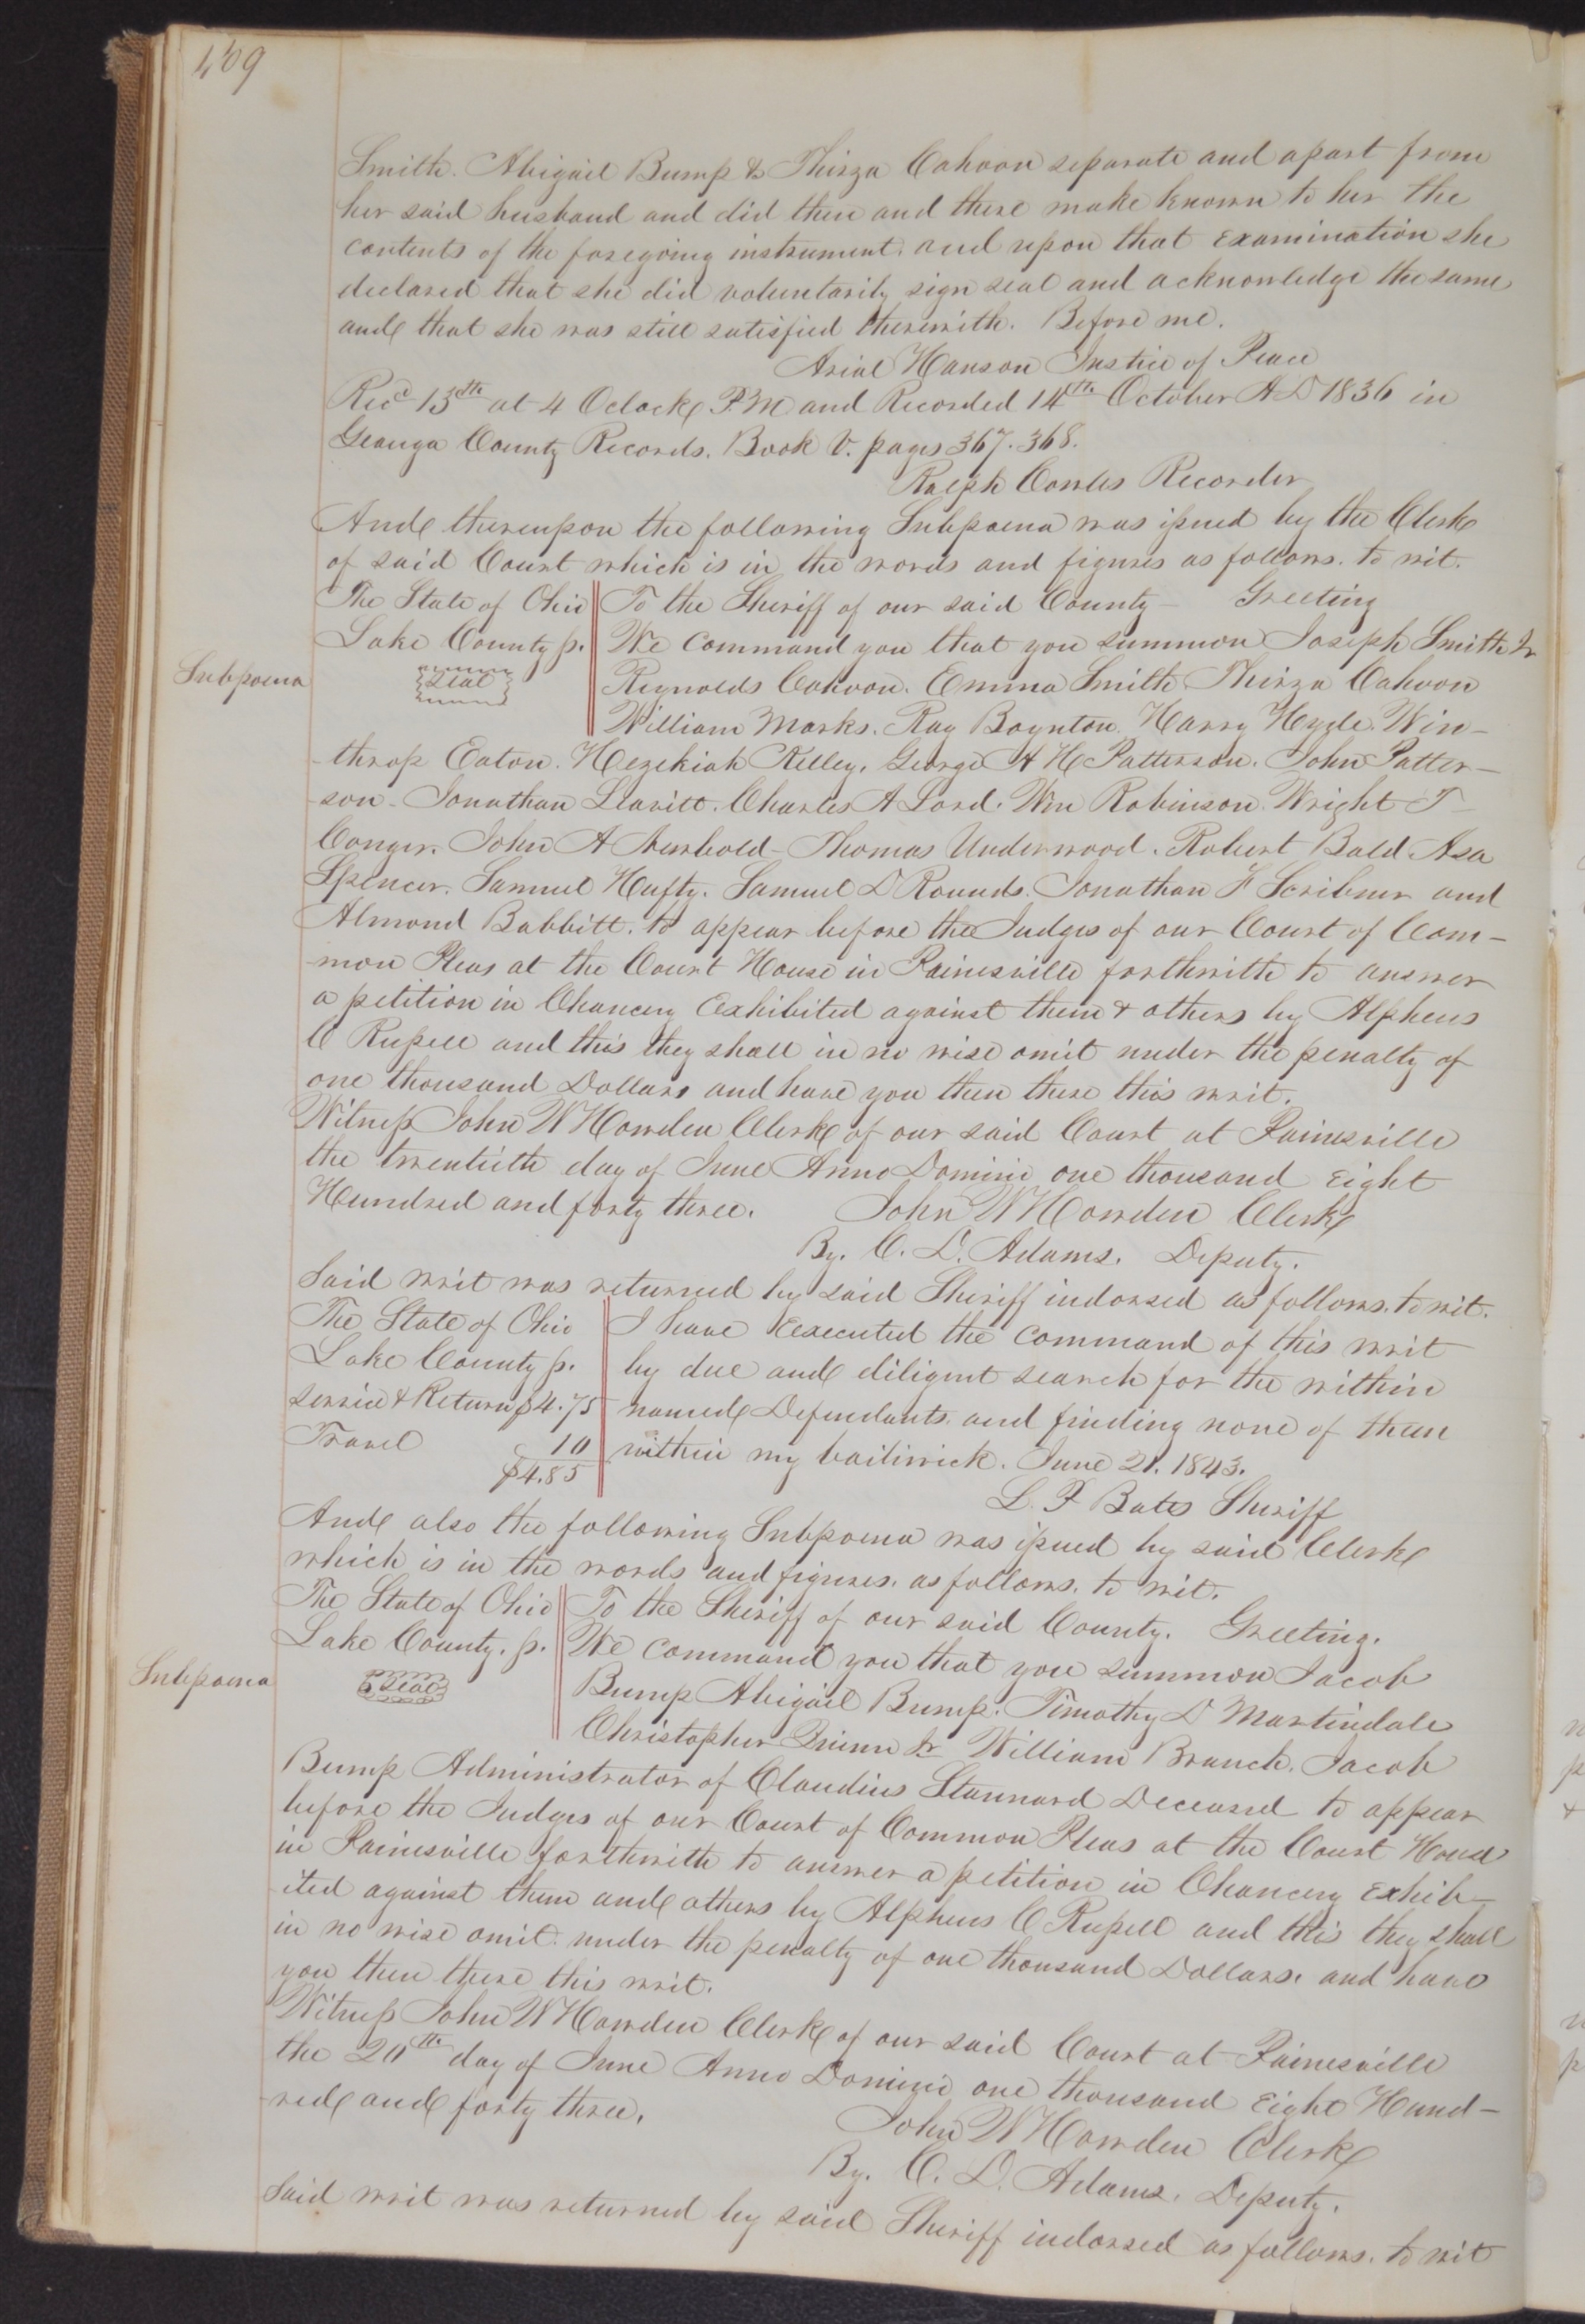 409
Smith. Abigail Bump & Thirza Cahoon separate and apart from
her said husband and did then and there make known to her the
contents of the foregoing instrument. and upon that Examination she
declared that she did voluntarily sign seal and acknowledge the same
and that she was still satisfied therewith. Before me.
Arial Hanson Justice of Peace
Recd 13th at 4 Oclock P.M and Recorded 14th October A D 1836 in
Geauga County Records. Book V. pages 367. 368.
Ralph Cowles Recorder
And thereupon the following Subpoena was issued by the Clerk
of said Court which is in the words and figures as follows. to wit.
The State of Ohio To the Sheriff of our said County — Greeting
Lake County ss. We command you that you summon Joseph Smith Jr
Subpoena Seal Reynolds Cahoon. Emma Smith. Thirza Cahoon
William Marks. Ray Boynton. Harry Hyde. Win-
throp Eaton. Hezekiah Kelley. George A H Patterson. John Patter-
son. Jonathan Leavitt. Charles A Lord. Wm Robinson. Wright T
Conger. John A Newbold – Thomas Underwood. Robert Bald. Asa
Spencer. Samuel Hufty. Samuel D Rounds. Jonathan F Scribner and
Almond Babbitt. to appear before the Judges of our Court of Com-
mon Pleas at the Court House in Painesville forthwith to answer
a petition in Chancery Exhibited against them & others by Alpheus
C Russell and this they shall in no wise omit under the penalty of
one thousand Dollars and have you then there this writ.
Witness John W Howden Clerk of our said Court at Painesville
the twentieth day of June Anno Domini one thousand Eight
Hundred and forty three. John W Howden Clerk
By. C. D. Adams. Deputy.
Said writ was returned by said Sheriff indorsed as follows. to wit.
The State of Ohio I have Executed the command of this writ
Lake County ss. by due and diligent search for the within
Service & Return $4.75 named Defendants and finding none of them
Travel 10 within my bailiwick. June 21. 1843.
$4.85
L. F Bates Sheriff
And also the following Subpoena was issued by said Clerk
which is in the words and figures. as follows. to wit.
The State of Ohio To the Sheriff of our said County. Greeting.
Lake County. ss. We command you that you summon Jacob
Subpoena Seal Bump Abigail Bump. Timothy D Martindale
Christopher Quinn Jr William Branch. Jacob
Bump Administrator of Claudius Stannard Deceased to appear
before the Judges of our Court of Common Pleas at the Court House
in Painesville forthwith to answer a petition in Chancery Exhib-
ited against them and others by Alpheus C Russell and this they shall
in no wise omit under the penalty of one thousand Dollars. and have
you then there this writ.
Witness John W Howden Clerk of our said Court at Painesville
the 20th day of June Anno Domini one thousand Eight Hund-
red and forty three. John W Howden Clerk
By. C. D. Adams. Deputy.
Said writ was returned by said Sheriff indorsed as follows. to wit